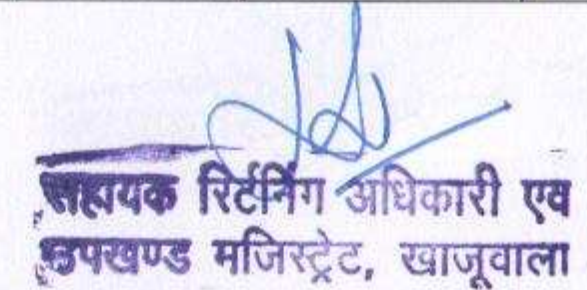 सहायक रिर्टनिंग अधिकारी एव
उपखण्ड मजिस्ट्रेट, खाजूवाला